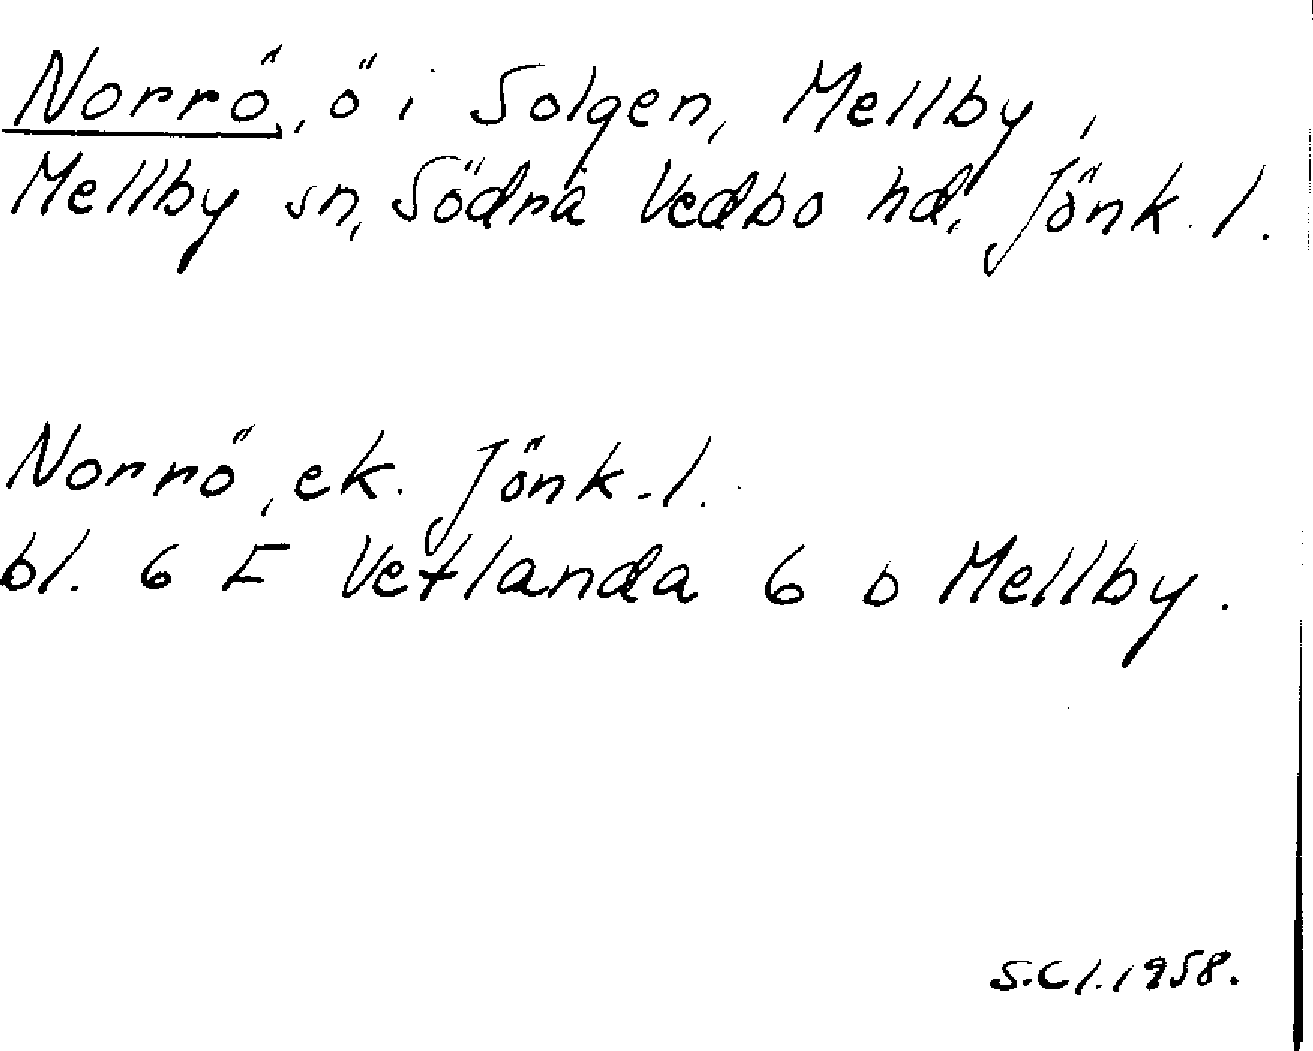 Norrö, ö i Solgen, Mellby,
Mellby sn, Södra Vedbo hd, Jönk. l.
Norrö, ek. Jönk. l.
bl. 6 E Vetlanda 6 b Mellby.
S.Cl. 1958.